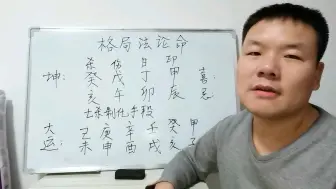 格局法论命
杀伤日印
坤：癸戊丁甲 喜：
亥午卯辰 忌
七杀制化手段
大 己庚辛壬癸甲
运：未申酉戌亥子